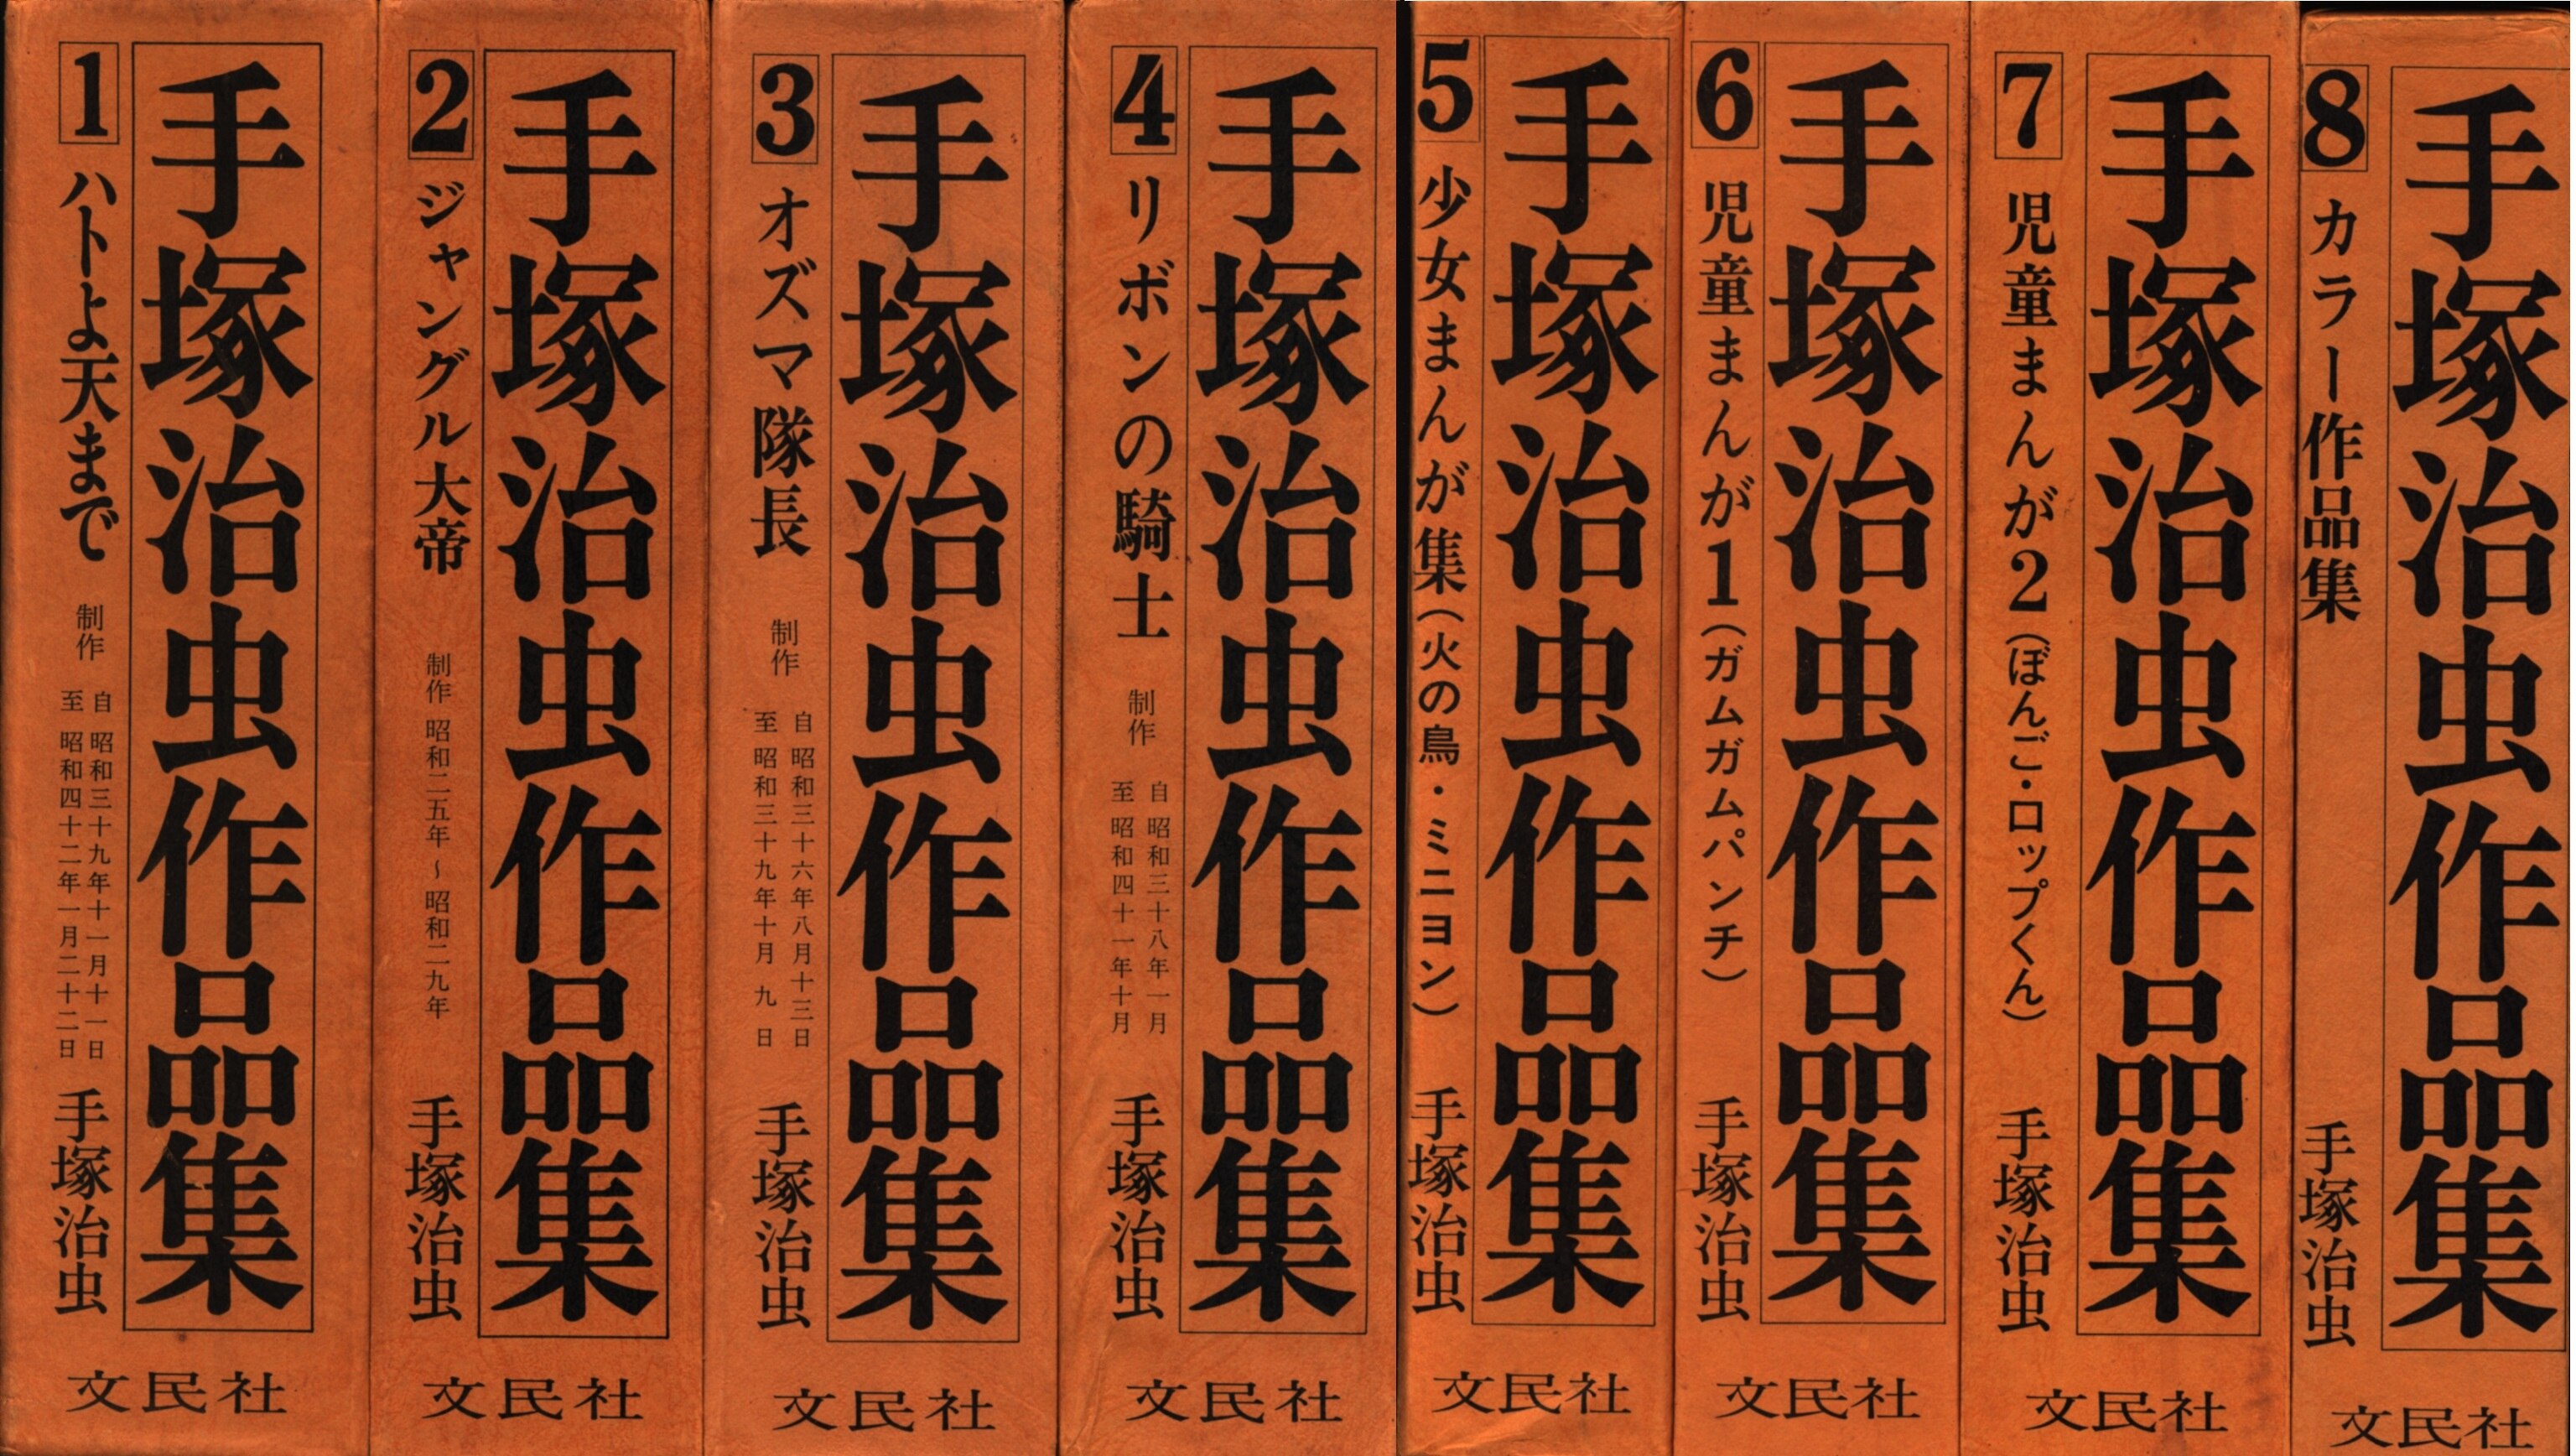 1
ハトよ天まで
制作
自 昭和三十九年十一月十一日
至 昭和四十二年一月二十二日
手塚治虫
手塚治虫作品集
文民社
2
ジャングル大帝
制作 昭和二五年~昭和二九年
手塚治虫
手塚治虫作品集
文民社
3
オズマ隊長
制作
自 昭和三十六年八月十三日
至 昭和三十九年十月九日
手塚治虫
手塚治虫作品集
文民社
4
リボンの騎士
制作
自 昭和三十八年一月
至 昭和四十一年十月
手塚治虫
手塚治虫作品集
文民社
5
少女まんが集(火の鳥・ミニヨン)
手塚治虫
手塚治虫作品集
文民社
6
児童まんが1(ガムガムパンチ)
手塚治虫
手塚治虫作品集
文民社
7
児童まんが2(ぽんご・ロップくん)
手塚治虫
手塚治虫作品集
文民社
8
カラー作品集
手塚治虫
手塚治虫作品集
文民社